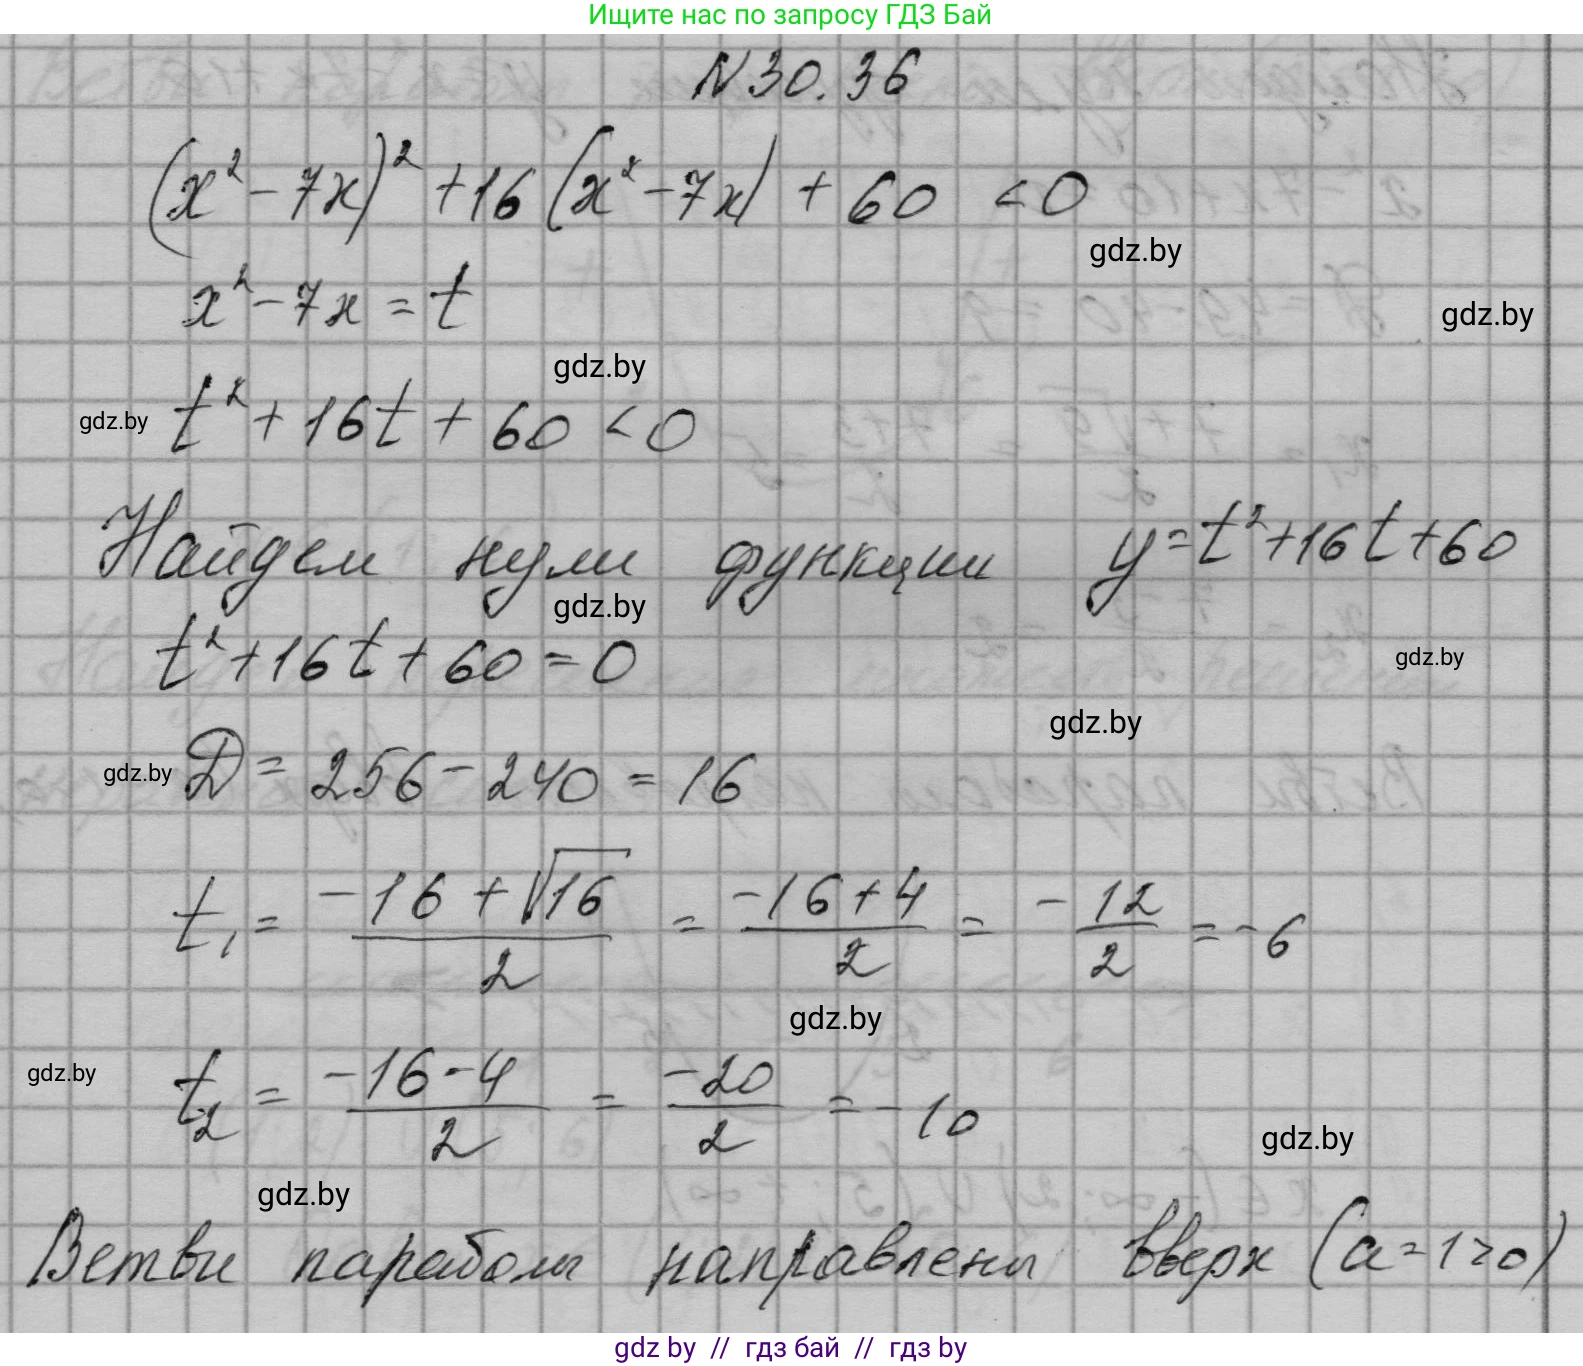 Ищите нас по запросу ГДЗ Бай
N 30.36
(x² - 7x)² + 16 (x² - 7x) + 60 < 0
gdz.by
x² - 7x = t
gdz.by
gdz.by
gdz.by
t² + 16t + 60 < 0
Найдем нули функции y = t² + 16t + 60
gdz.by
t² + 16t + 60 = 0
gdz.by
gdz.by
gdz.by
D = 256 - 240 = 16
t₁ = (-16 + √16)/2 = (-16 + 4)/2 = -12/2 = -6
gdz.by
gdz.by
t₂ = (-16 - 4)/2 = -20/2 = -10
gdz.by
gdz.by
Ветви параболы направлены вверх (a = 1 > 0)
gdz by // гдз бай // гдз by